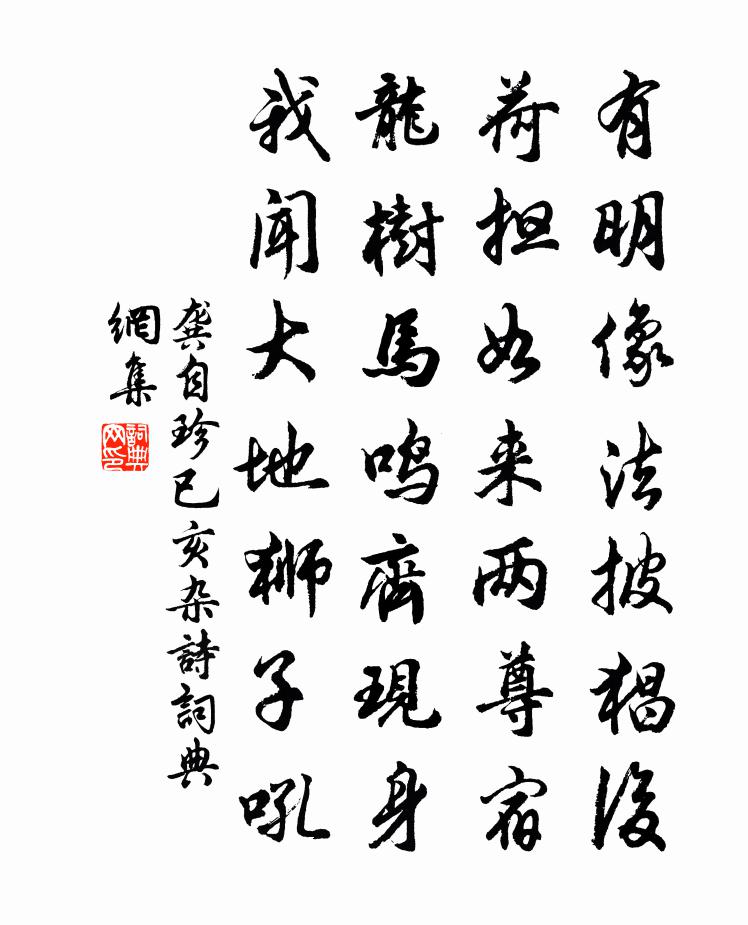 有明像法披猖後
荷担如来两尊宿
龍樹馬鳴齊現身
我聞大地獅子吼
龔自珍已亥杂詩詞典
網集
詞典
网印